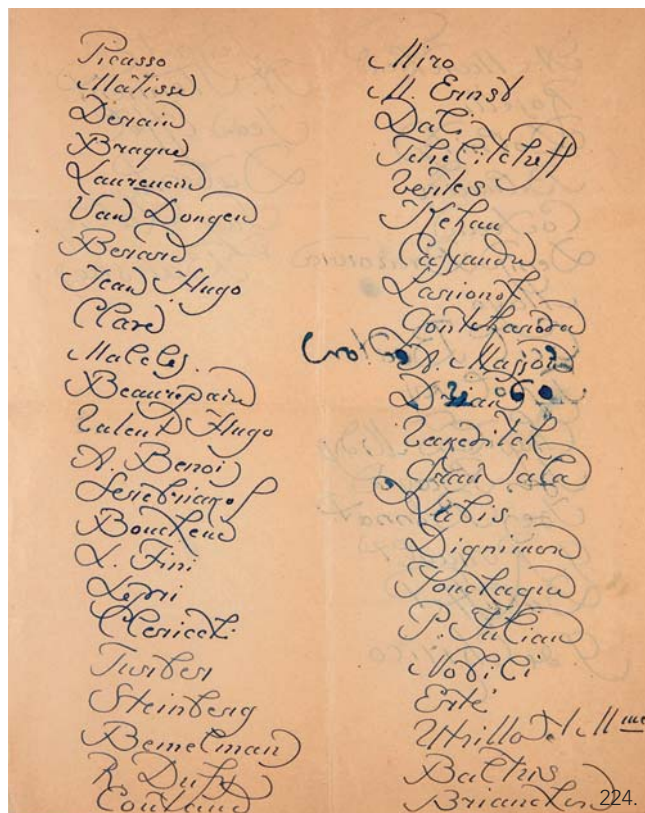 Picasso
Matisse
Derain
Braque
Laurencin
Van Dongen
Berard
Jean Hugo
Clavé
Malcles.
Beaurepaire
Valent Hugo
A. Benoi
Serebriakof
Bouchene
L. Fini
Lepri
Clerici
Turber
Steinberg
Bemelman
R. Dufy
Coutaud
Miro
M. Ernst
Dali
Tchelitcheff
Vertes
Kehan
Cassandre
Larionof
Gontcharova
A. Masson
Grau Sala
Dignimon
Touchague
P. Julian
Nobili
Erté
Utrillo et Mme
Balthis
224.